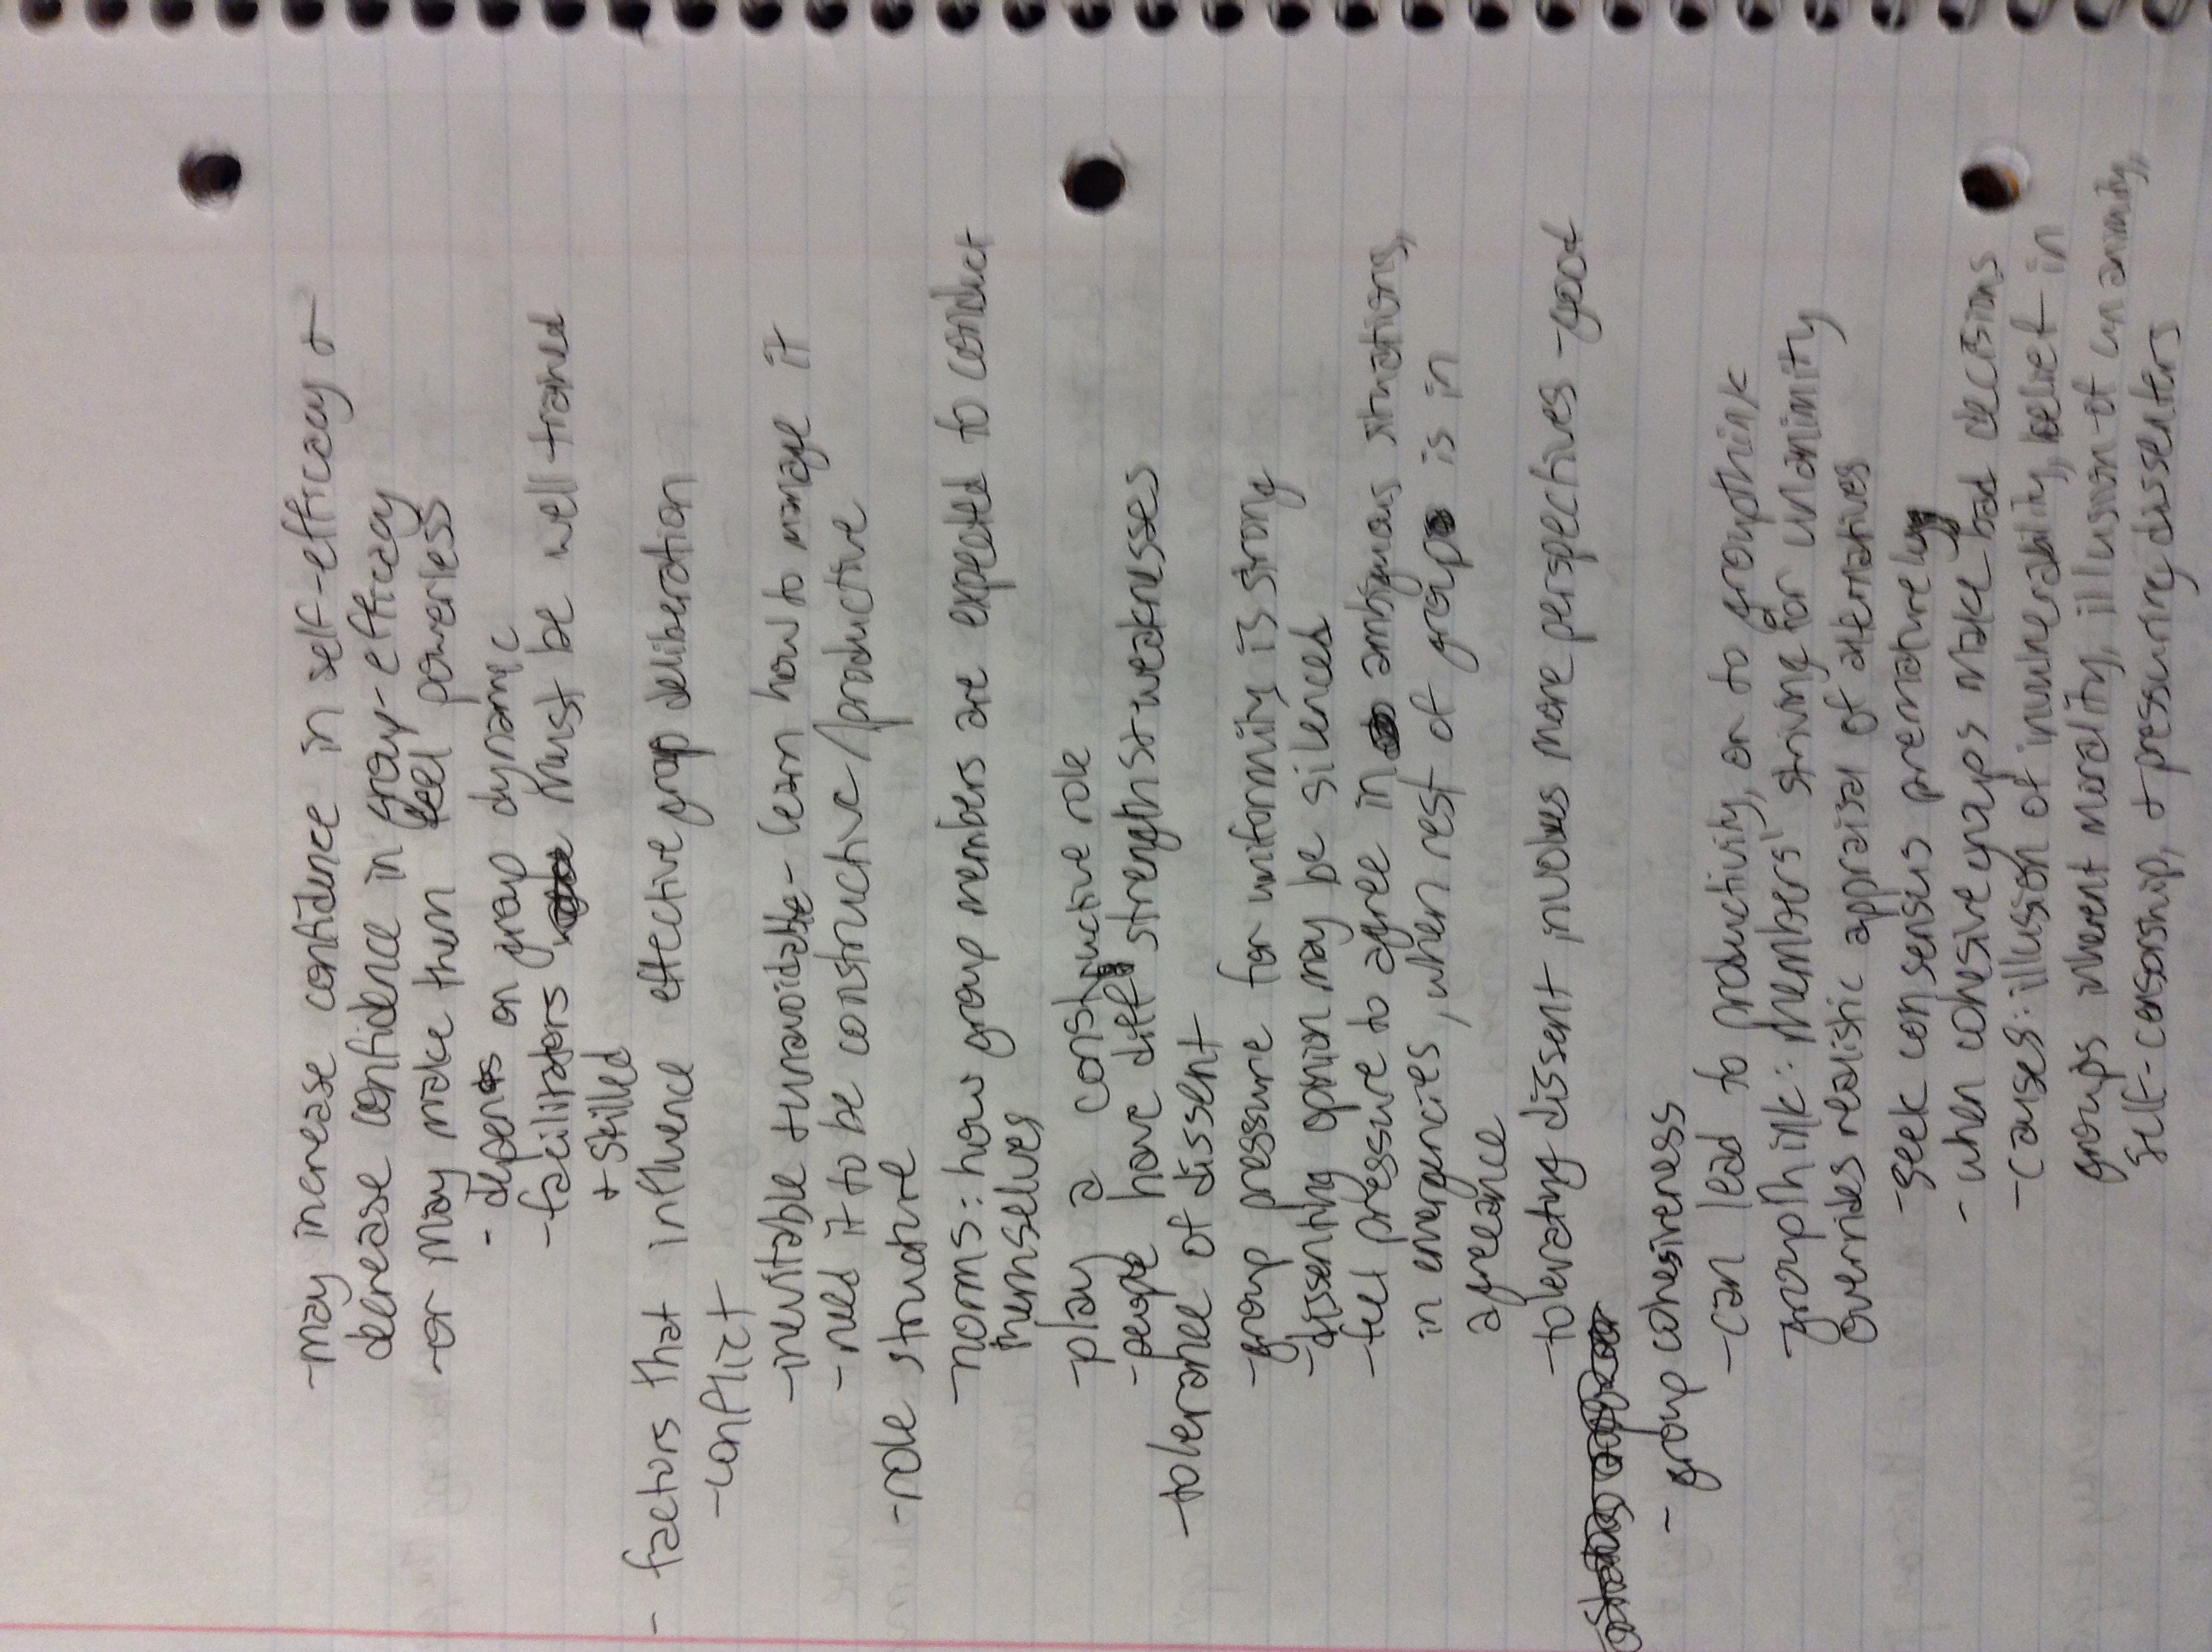 -may increase confidence in self-efficacy +
decrease confidence in group-efficacy
-or may make them feel powerless
- depends on group dynamic
-facilitators must be well trained
+ skilled
- factors that influence effective group deliberation
-conflict
-inevitable + unavoidable - learn how to manage it
-need it to be constructive/productive
-role structure
-norms: how group members are expected to conduct
themselves
-play a constructive role
-people have diff strengths + weaknesses
-tolerance of dissent
-group pressure for uniformity is strong
-dissenting opinion may be silenced
-feel pressure to agree in ambiguous situations,
in emergencies, when rest of group is in
agreeance
-tolerating dissent involves more perspectives -good
- group cohesiveness
-can lead to productivity, or to groupthink
-groupthink: members' striving for unanimity
overrides realistic appraisal of alternatives
-seek consensus prematurely
- when cohesive groups make bad decisions
-causes: illusion of invulnerability, belief in
groups inherent morality, illusion of unanimity,
self-censorship, + pressuring dissenters